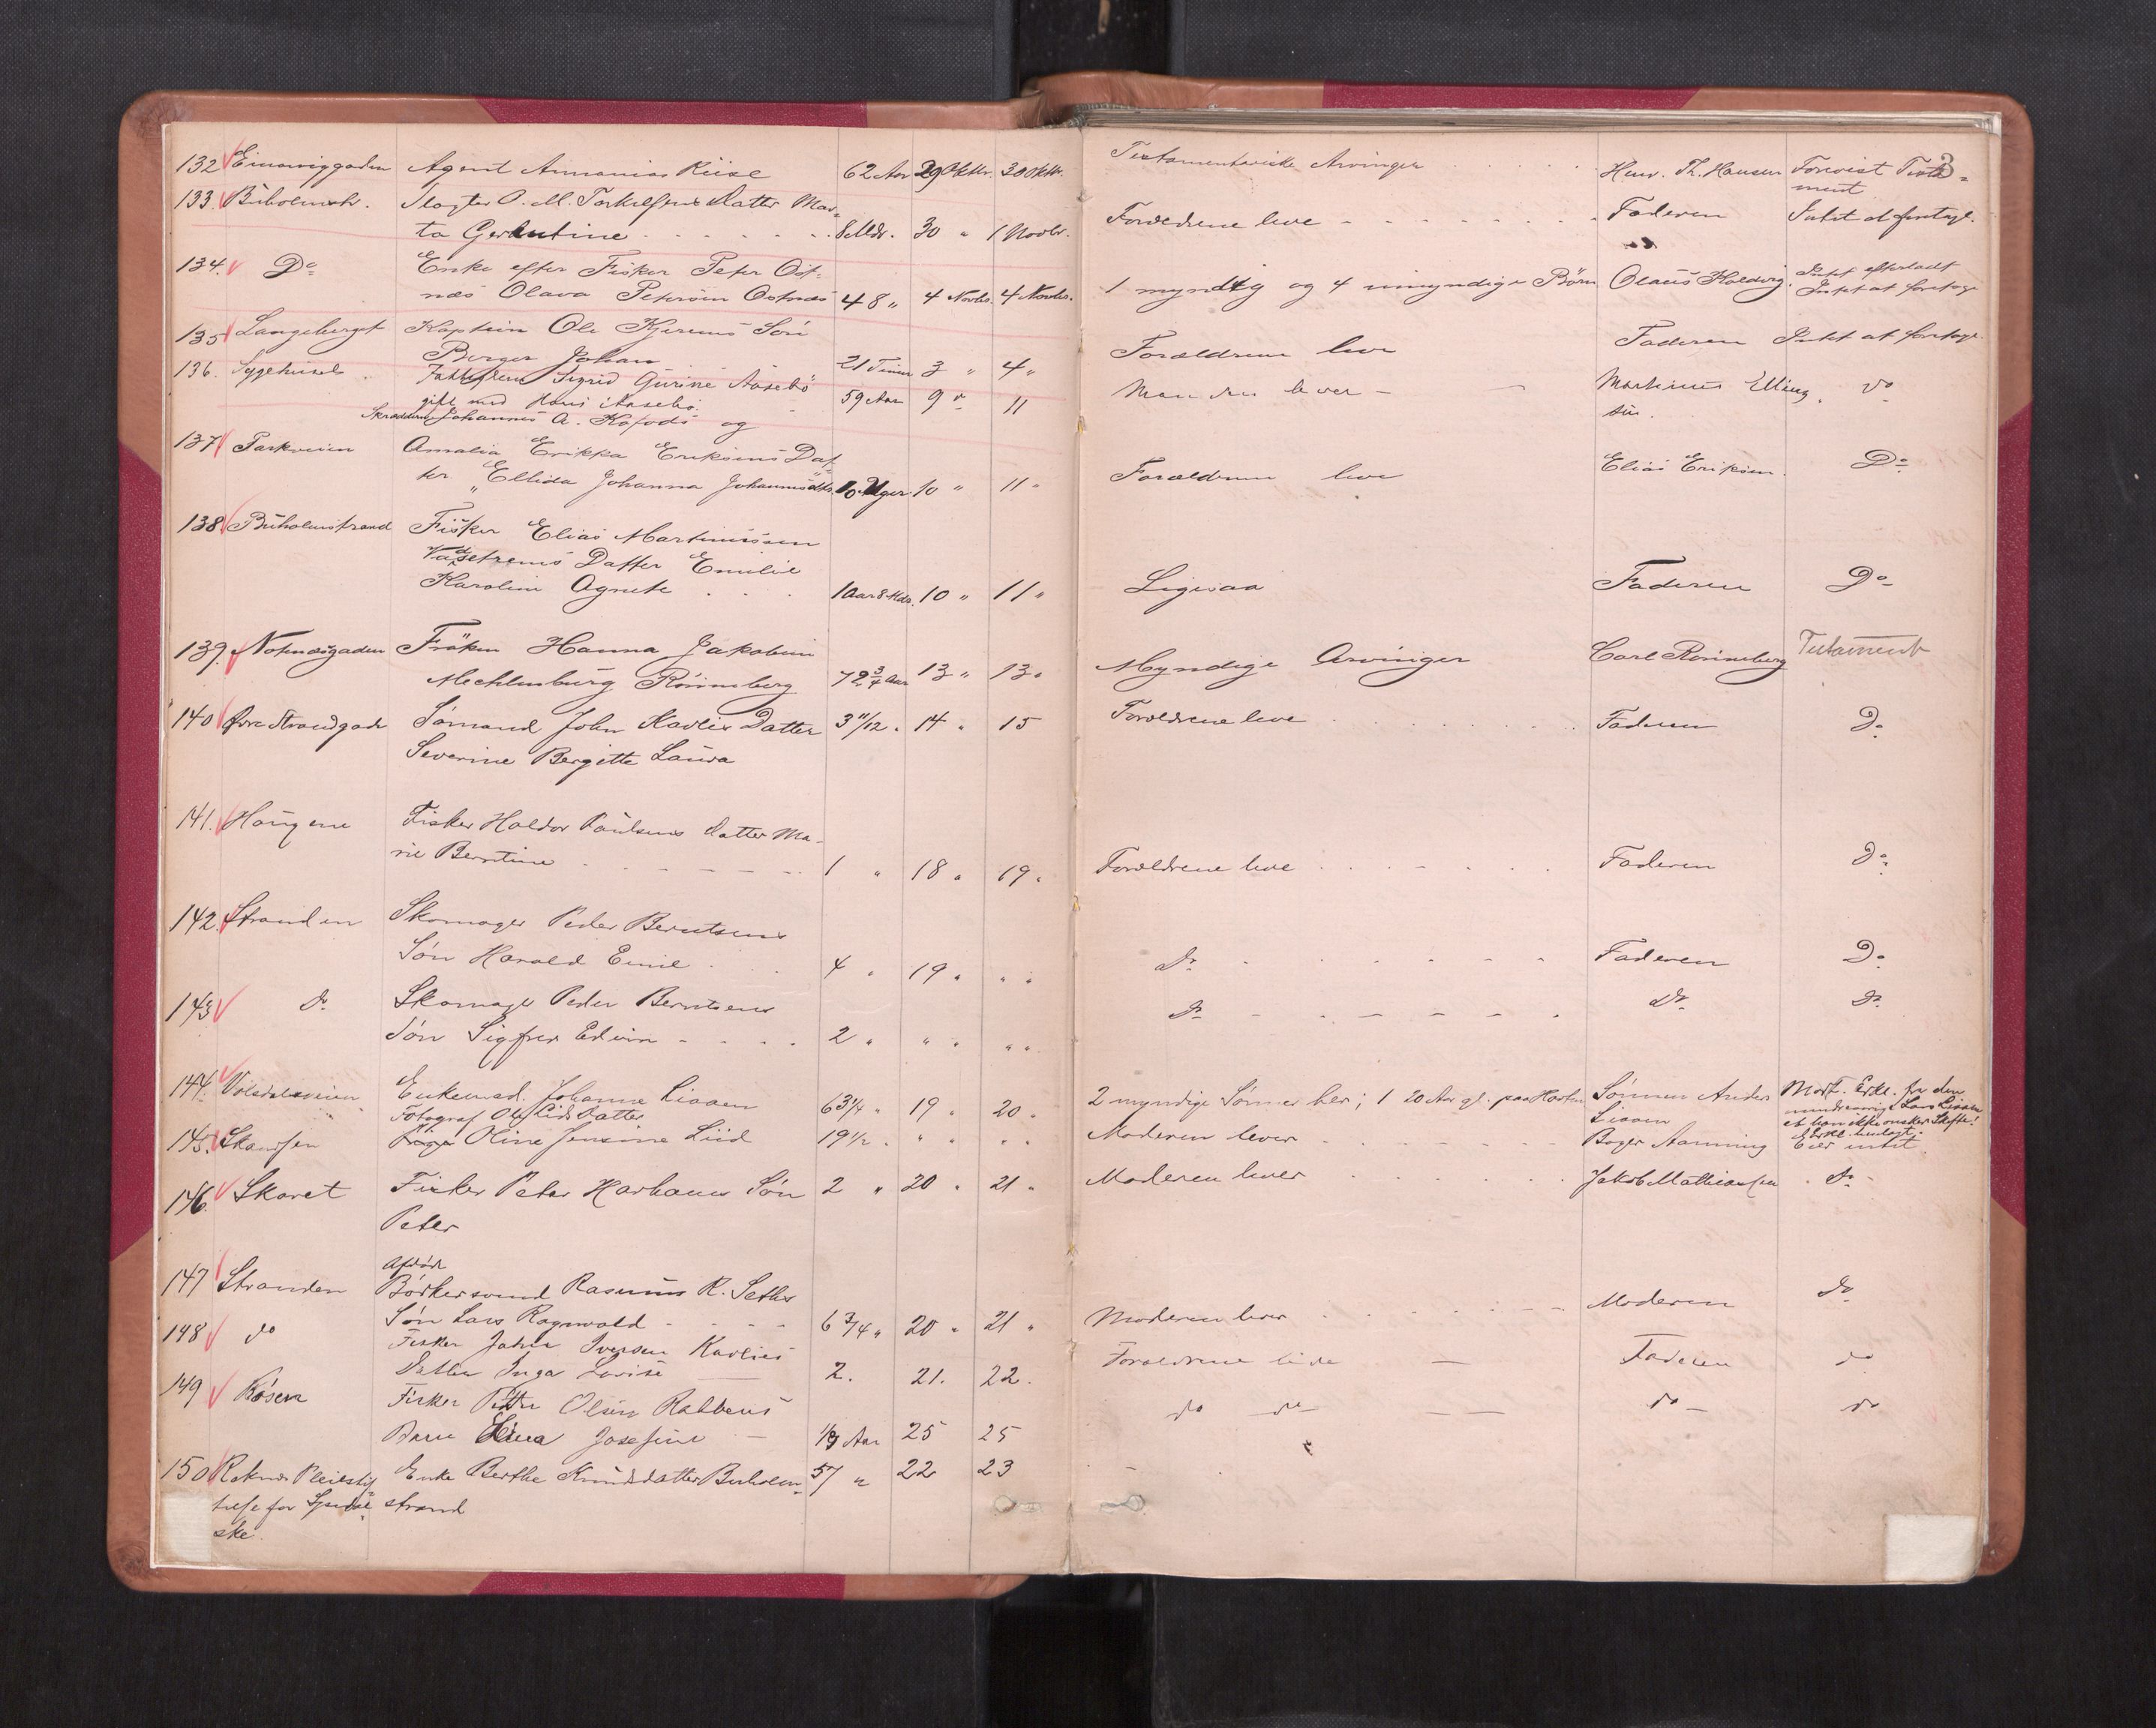 3
132 Agent Ammanias Riise 62 Aar 29 Oktbr. 30 Oktbr. Testamentariske Arvinger Henr. Th. Hansen Forevist Testa=
ment
133. Buholmstr. Slagter O. M. Torkelsens Datter Mar=
ta Gerhntine 8 Mdr. 30 " 1 Novbr. Forældrene leve Faderen Intet at foretage.
134. Do Enke efter Fisker Peter Ost=
næs Olava Petrsin Ostnæs 48 " 4 Novbr. 4 Novbr. 1 myndig og 4 umyndige Børn Olaus Holdvig Intet efterladt
Intet at foretage
135 Langeberget Kaptein Ole Kjerems Søn
Berger Johan 21 Timer 3 " 4 " Forældrene leve Faderen Intet at foretage
136. Sygehuset Sigrid Gurine Aasebø
gift med Hans Aasebø. 59 Aar 9 do 11 Manden lever Martinus Elling
sen. do
Skrædder Johannes A. Kofods og
137 Parkveien Amalia Erikka Eriksens Dat=
ter "Ellida Johanna Johannesdtr. 10 Uger 10 " 11 " Forældrene leve Elias Eriksen. Do
138 Buholmstrand Fisker Elias Martinussen
Vadsetrems Datter Emilie
Karoline Agnete 1 Aar 8 Mdr. 10 " 11 " Ligesaa Faderen Do
139. Notenesgaden Frøken Hanna Jakobine
Mechlenburg Rønneberg 72 3/4 Aar 13 " 13 " Myndige Arvinger Carl Rønneberg Testament
140 Øvre Strandgade Sømand John Kavlis Datter 3 11/12 " 14 " 15 Forældrene leve Faderen Do
Severine Bergitte Laura
141. Haugene Fisker Haldor Paulsens Datter Ma=
rie Berntine 1 " 18 " 19 " Forældrene leve Faderen Do
142. Stranden Skomager Peder Berntsens
Søn Harald Emil 4 " 19 " " " do Faderen Do
143 do Skomager Peder Berntsens
Søn Sigfred Edvin 2 " " " " " do do do
144. Volsdalsveien Enkemad. Johanne Liaaen 63 1/4 " 19 " 20 " 2 myndige Sønner her; 1 20 Aar gl. paa Horten Sønnen Anders
Liaaen Modt. Erkl. fra den
mindreaarige Lars Liaaen
at han ikke ønsker Skifte.
Erkl. henlagt.
Fotograf Ole Liids Datter
145. Skansen Oline Jensine Liid 19 1/2 " " " " " Moderen lever Bager Aanning Eier intet.
146. Skaret Fisker Peter Harhauns Søn 2 " 20 " 21 " Moderen lever Jakob Mathiassen do
Peter
147 Stranden Afdøde
Bødkersvend Rasmus R. Sæthes
Søn Lars Ragnvald 6 3/4 " 20 " 21 " Moderen lever Moderen do
148 do Fisker John Iversen Kavlies
Datter Inga Lovise 2. 21. 22. Forældrene leve Faderen do
149 Røsen Fisker Petter Olsen Rabbens
Barn Elina Josefine 1/2 Aar 25 25 do do do do
150 Reknes Pleiestif= Enke Berthe Knudsdatter Buholm= 57 " 22 23
telse for Spedal= strand
ske.